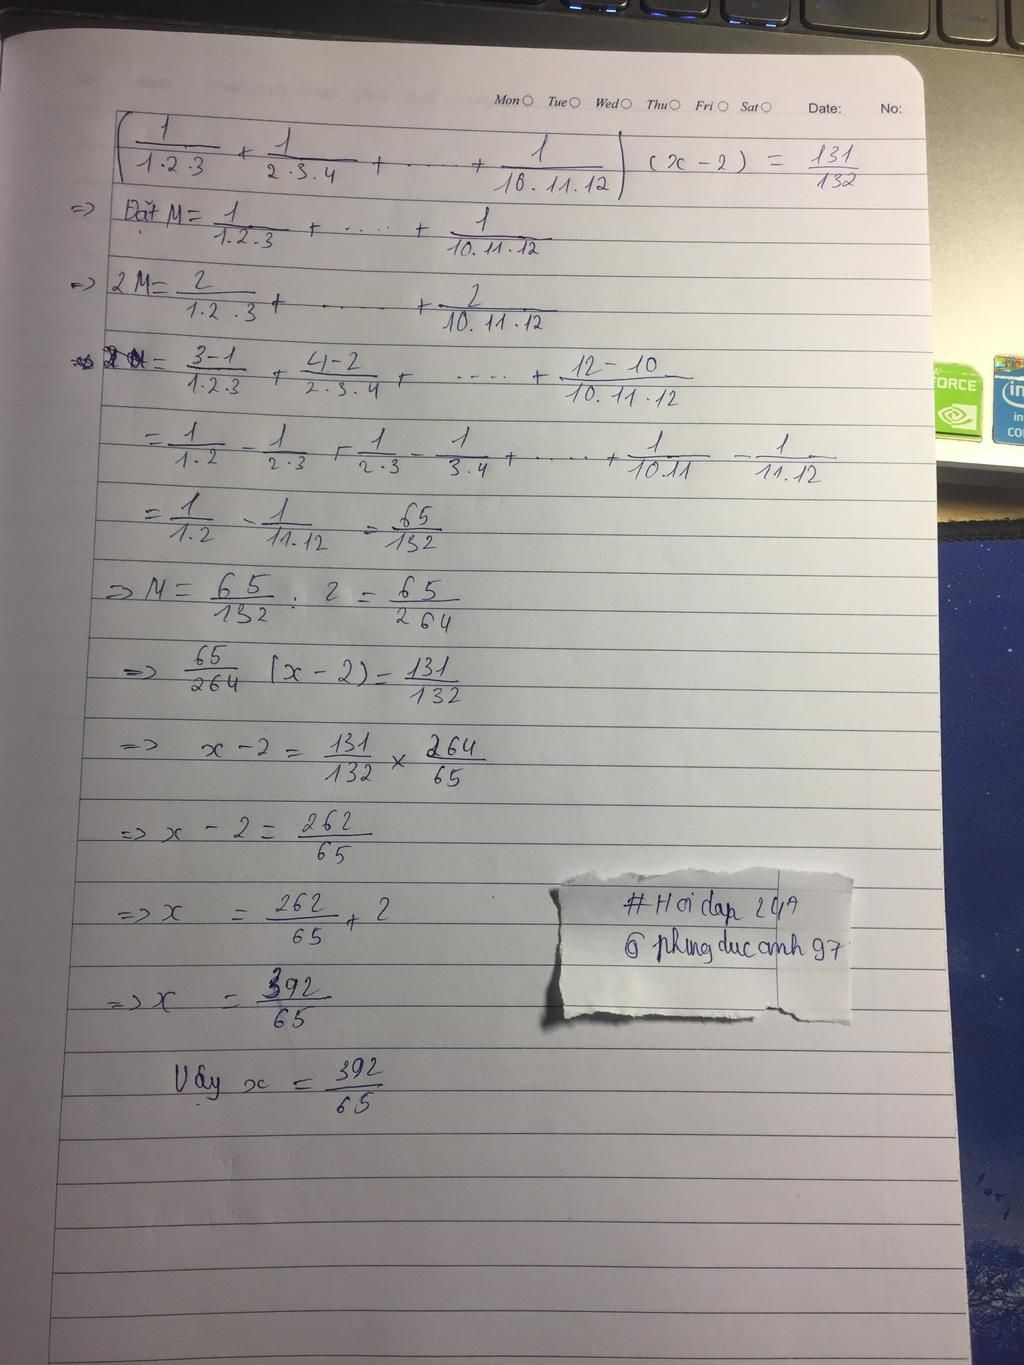 Mon Tue Wed Thu Fri Sat Date: No:
(1/1.2.3 + 1/2.3.4 + ..... + 1/10.11.12) (x - 2) = 131/132
=> Đặt M = 1/1.2.3 + ..... + 1/10.11.12
=> 2M = 2/1.2.3 + ........ + 2/10.11.12
= 3-1/1.2.3 + 4-2/2.3.4 + ..... + 12-10/10.11.12
= 1/1.2 - 1/2.3 + 1/2.3 - 1/3.4 + ..... + 1/10.11 - 1/11.12
= 1/1.2 - 1/11.12 = 65/132
=> M = 65/132 : 2 = 65/264
=> 65/264 (x - 2) = 131/132
=> x - 2 = 131/132 × 264/65
=> x - 2 = 262/65
=> x = 262/65 + 2
=> x = 392/65
Vậy x = 392/65
# Hoi dap 247
phungducanh 97
FORCE